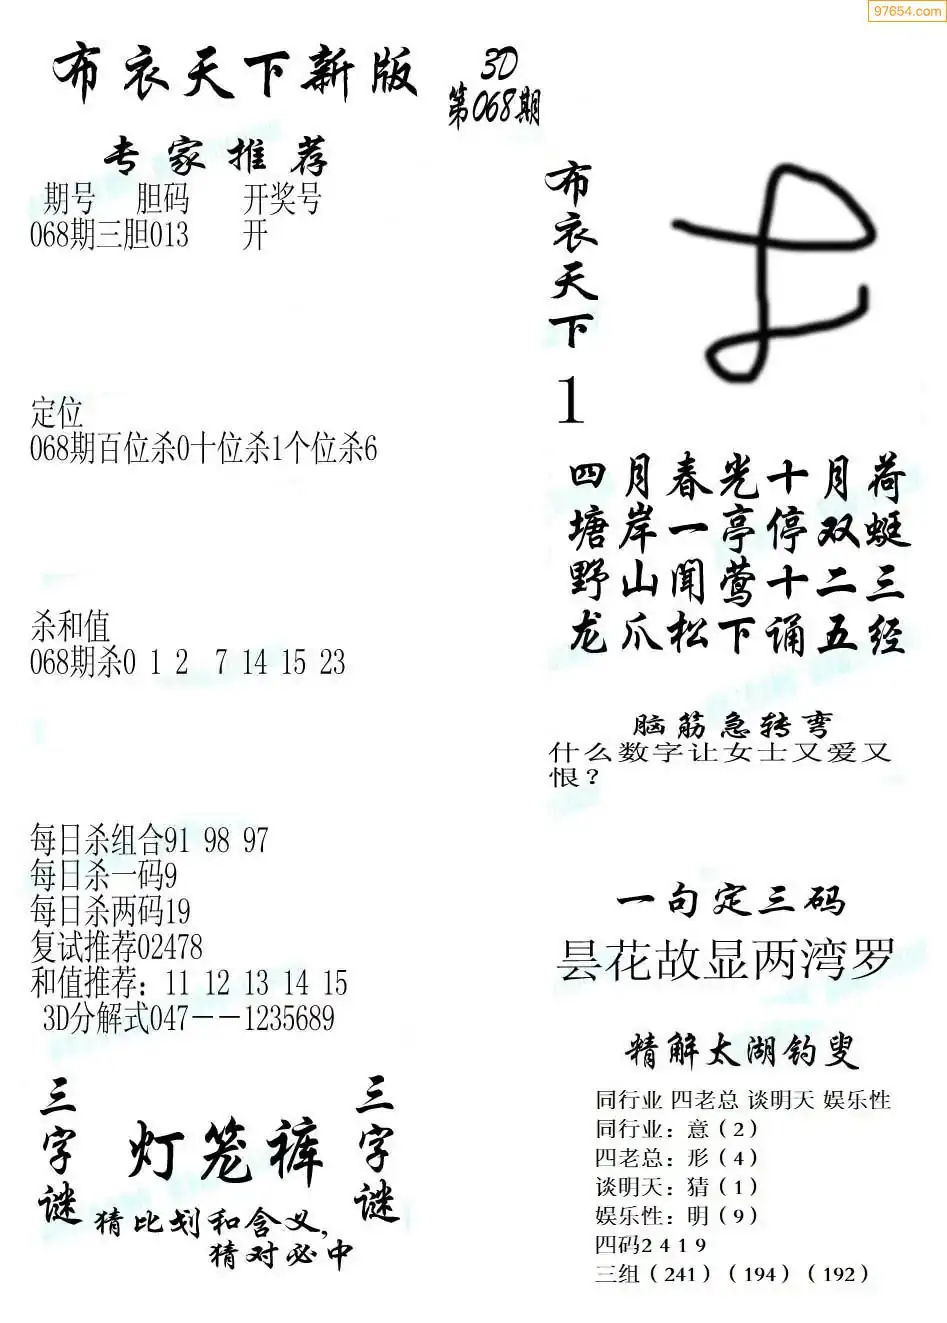 97654.com
布衣天下新版
3D
第068期
专家推荐
期号 胆码 开奖号
068期三胆013 开
定位
068期百位杀0十位杀1个位杀6
杀和值
068期杀0 1 2 7 14 15 23
每日杀组合91 98 97
每日杀一码9
每日杀两码19
复试推荐02478
和值推荐：11 12 13 14 15
3D分解式047－－1235689
三字谜
灯笼裤
三字谜
猜比划和含义，
猜对必中
布衣天下
1
四月春光十月荷
塘岸一亭停双蜓
野山闻莺十二三
龙爪松下诵五经
脑筋急转弯
什么数字让女士又爱又
恨？
一句定三码
昙花故显两湾罗
精解太湖钓叟
同行业 四老总 谈明天 娱乐性
同行业：意（2）
四老总：形（4）
谈明天：猜（1）
娱乐性：明（9）
四码2 4 1 9
三组（241）（194）（192）